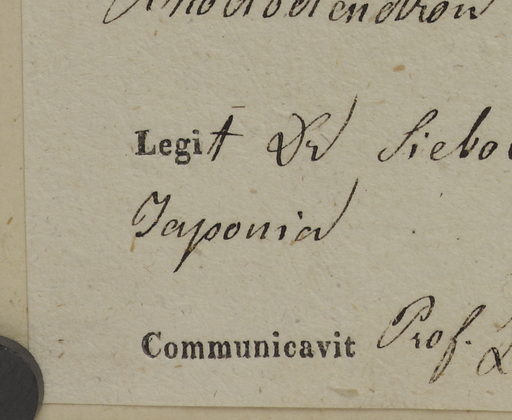 Rhododendron
Legit Dr Siebo
Japonia
Communicavit Prof.